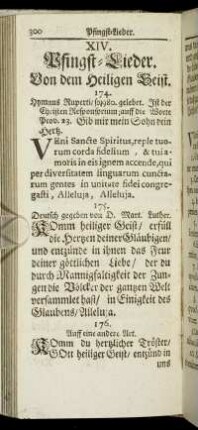 300 Pfingst-Lieder.
XIV.
Pfingst-Lieder.
Von dem Heiligen Geist.
174.
Hymnus Ruperti so 980. gelebet. Ist der
Christen Responsorium auff die Worte
Prov. 23. Gib mir mein Sohn dein
Hertz.
VEni Sancte Spiritus, reple tuo-
rum corda fidelium, & tui a-
moris in eis ignem accende, qui
per diversitatem linguarum cuncta-
rum gentes in unitate fidei congre-
gasti, Alleluja, Alleluja.
175.
Deutsch gegeben von D. Mart. Luther.
KOmm heiliger Geist / erfüll
die Hertzen deiner Gläubigen /
und entzünde in ihnen das Feur
deiner göttlichen Liebe / der du
durch Mannigfaltigkeit der Zun-
gen die Völcker der gantzen Welt
versammlet hast / in Einigkeit des
Glaubens / Alleluja.
176.
Auff eine andere Art.
KOmm du hertzlicher Tröster /
GOtt heiliger Geist / entzünd in
uns